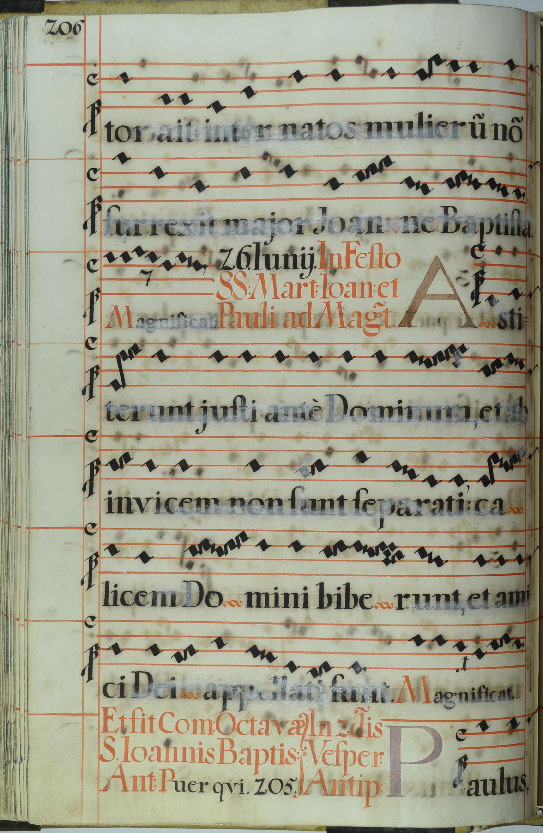 206
tor ait inter natos mulierũ nõ
surrexit major Joanne Baptista.
26 Iunij. In Festo
SS. Mart. Ioan. et
Magnificat. Pauli ad Magt. A sti-
terunt justi antè Dominum, et ab
invicem non sunt separati: ca
licem Domini biberunt, et ami
ci Dei appellati sunt. Magnificat.
Et fit Com. Octavæ In 2dis
S. Ioannis Baptis. Vesper
Ant. Puer qvi. 205. Antip P aulus